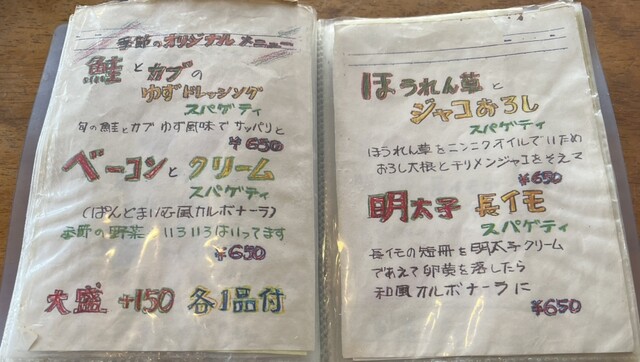 季節のオリジナルメニュー
鮭とカブの
ゆずドレッシング
スパゲティ
旬の鮭とカブ ゆず風味でサッパリと
¥650
ベーコンとクリーム
スパゲティ
(ぱんどまいむ風カルボナーラ)
季節の野菜 いろいろはいってます
¥650
大盛 +150 各1品付
ほうれん草と
ジャコおろし
スパゲティ
ほうれん草をニンニクオイルでいため
おろし大根とチリメンジャコをそえて
¥650
明太子 長イモ
スパゲティ
長イモの短冊を明太子クリーム
であえて卵黄を落したら
和風カルボナーラに
¥650